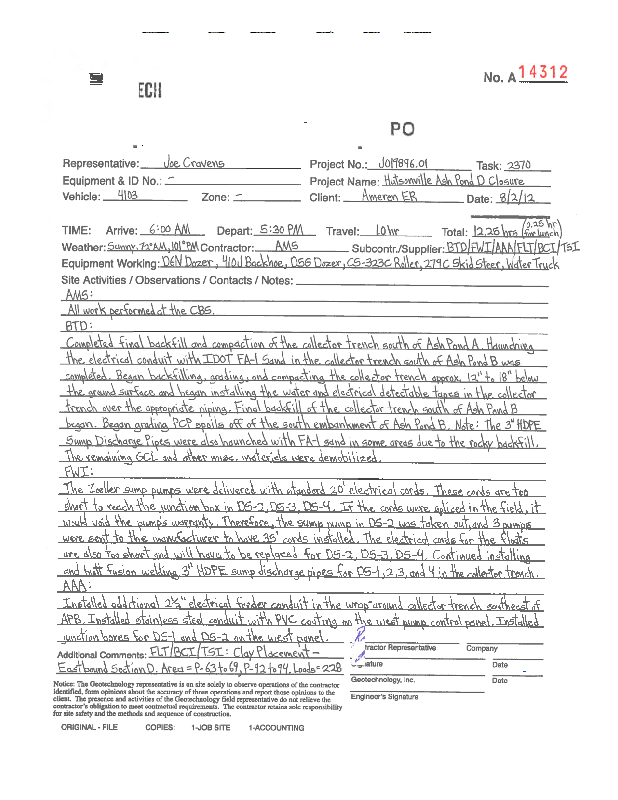 No. A 14312
ECH
PO
Representative: Joe Cravens Project No.: J019896.01 Task: 2370
Equipment & ID No.: - Project Name: Hutsonville Ash Pond D Closure
Vehicle: 4103 Zone: - Client: Ameren ER Date: 8/2/12
TIME: Arrive: 6:00 AM Depart: 5:30 PM Travel: 1.0 hr Total: 12.25 hrs (0.25 hr for lunch)
Weather: Sunny, 72°AM, 101°PM Contractor: AMS Subcontr./Supplier: BTD/FWI/AAA/FLT/BCI/TSI
Equipment Working: D6N Dozer, 410J Backhoe, 055 Dozer, CS-323C Roller, 279C Skid Steer, Water Truck
Site Activities / Observations / Contacts / Notes:
AMS:
All work performed at the CBS.
BTD:
Completed final backfill and compaction of the collector trench south of Ash Pond A. Haunching
the electrical conduit with IDOT FA-1 Sand in the collector trench south of Ash Pond B was
completed. Began backfilling, grading, and compacting the collector trench approx. 12" to 18" below
the ground surface and began installing the water and electrical detectable tapes in the collector
trench over the appropriate piping. Final backfill of the collector trench south of Ash Pond B
began. Began grading PCP spoils off of the south embankment of Ash Pond B. Note: The 3" HDPE
Sump Discharge Pipes were also haunched with FA-1 sand in some areas due to the rocky backfill.
The remaining GCL and other misc. materials were demobilized.
FWI:
The Zoeller sump pumps were delivered with standard 20' electrical cords. These cords are too
short to reach the junction box in DS-2, DS-3, DS-4. If the cords were spliced in the field, it
would void the pumps warranty. Therefore, the sump pump in DS-2 was taken out, and 3 pumps
were sent to the manufacturer to have 35' cords installed. The electrical cords for the floats
are also too short and will have to be replaced for DS-2, DS-3, DS-4. Continued installing
and butt fusion welding 3" HDPE sump discharge pipes for DS-1, 2, 3, and 4 in the collector trench.
AAA:
Installed additional 2½" electrical feeder conduit in the wrap around collector trench southeast of
APB. Installed stainless steel conduit with PVC coating on the west pump control panel. Installed
junction boxes for DS-1 and DS-2 on the west panel.
Additional Comments: FLT/BCI/TSI: Clay Placement -
Eastbound Section D. Area = P-63 to 69, P-92 to 94. Loads = 228
tractor Representative Company
ature Date
Geotechnology, Inc. Date
Engineer's Signature
Notice: The Geotechnology representative is on site solely to observe operations of the contractor
identified, form opinions about the accuracy of those operations and report those opinions to the
client. The presence and activities of the Geotechnology field representative do not relieve the
contractor's obligation to meet contractual requirements. The contractor retains sole responsibility
for site safety and the methods and sequence of construction.
ORIGINAL - FILE COPIES: 1-JOB SITE 1-ACCOUNTING